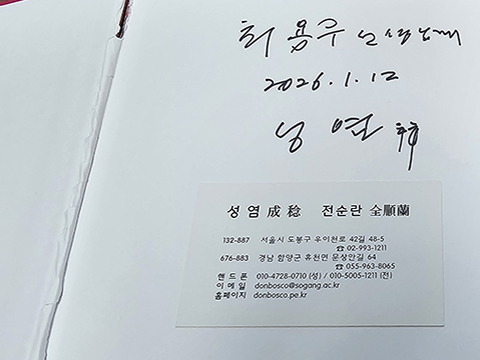 최용우 선생님께
2026. 1. 12
성염 拜
성 염 成 稔 전순란 全順蘭
132-887 서울시 도봉구 우이천로 42길 48-5
☎ 02-993-1211
676-883 경남 함양군 휴천면 문상안길 64
☎ 055-963-8065
핸 드 폰 010-4728-0710 (성) / 010-5005-1211 (전)
이 메 일 donbosco@sogang.ac.kr
홈페이지 donbosco.pe.kr